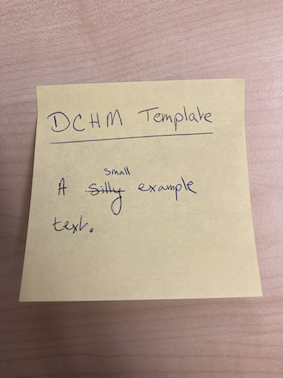 DCHM Template
A Silly Small example
text.